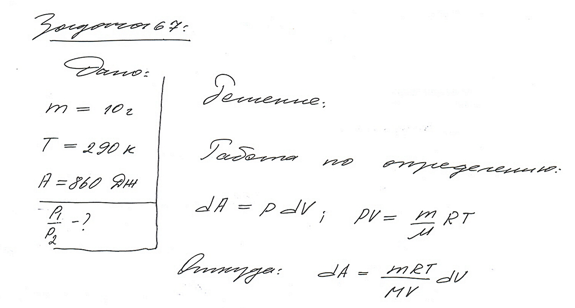 Задача 67:
Дано:
m = 10 г
T = 290 К
A = 860 Дж
P₁/P₂ - ?
Решение:
Работа по определению:
dA = P dV; PV = m/μ RT
Откуда: dA = mRT/MV dV